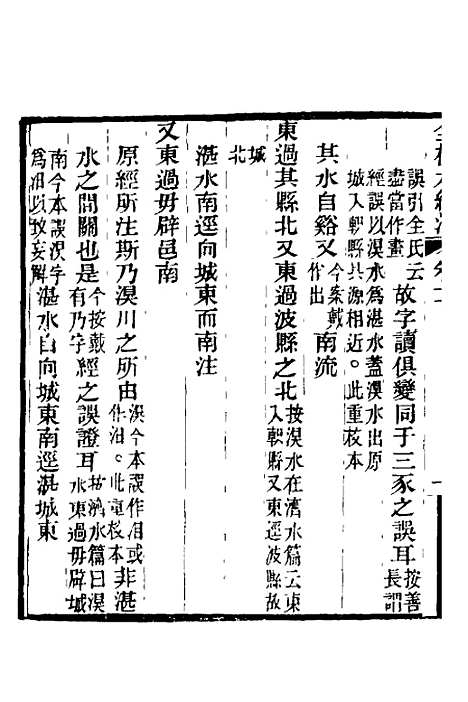 誤引全氏云
盡當作畫
故字讀俱變同于三豕之誤耳
按善
長謂
經誤以湨水爲湛水蓋湨水出原
城入軹縣共源相近。此重校本
其水自谿又
今案戴
作出
南流
東過其縣北又東過波縣之北
按湨水在濟水篇云東
入軹縣又東逕波縣故
城
北
湛水南逕向城東而南注
又東過毋辟邑南
原經所注斯乃湨川之所由
湨今本誤作沮或
作泪。此重校本
非湛
水之間關也是
今按戴
有乃字
經之誤證耳
故濟水篇曰湨
水東過毋辟城
南今本誤湨字
爲沮以致妄解
湛水自向城東南逕湛城東